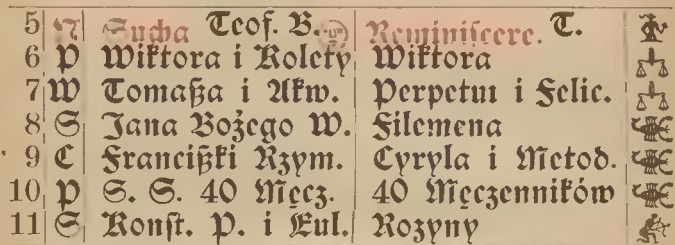 5 N Sucha Teof. B. Reminiscere. T.
6 P Wiktora i Kolety Wiktora
7 W Tomaßa i Akw. Perpetui i Felic.
8 S Jana Bożego W. Filemena
9 C Francißki Rzym. Cyryla i Metod.
10 P S. S. 40 Męcz. 40 Męczenników
11 S Konst. P. i Eul. Rozyny